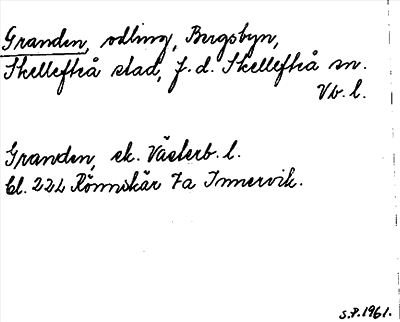 Granden, odling, Bergsbyn,
Skellefteå stad, f.d. Skellefteå sn.
Vb. l.
Granden, ek. Västerb. l.
Bl. 22L Rönnskär 7a Innervik.
S.P. 1961.